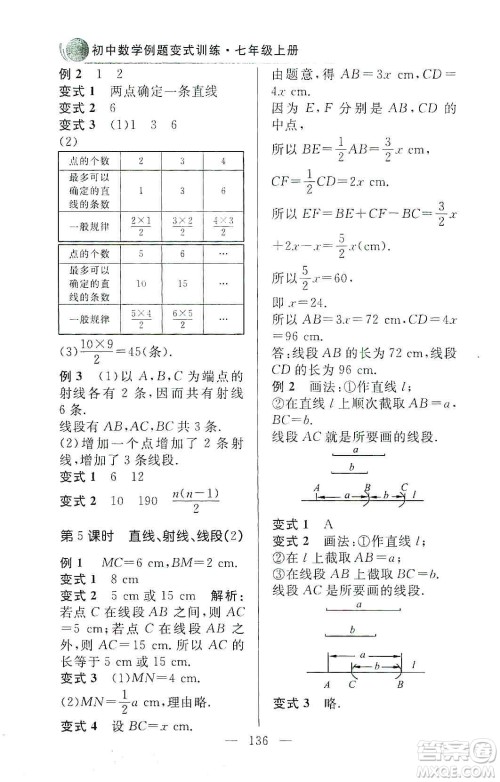 初中数学例题变式训练·七年级上册
例 2 1 2
变式 1 两点确定一条直线
变式 2 6
变式 3 (1)1 3 6
(2)
点的个数 2 3 4
最多可以确定的直线的条数 1 3 6
一般规律 2×1/2 3×2/2 4×3/2
点的个数 5 6 …
最多可以确定的直线的条数 10 15 …
一般规律 5×4/2 6×5/2 …
(3) 10×9/2 =45(条).
例 3 (1)以 A、B、C 为端点的
射线各有 2 条,因而共有射线
6 条.
线段有 AB、AC、BC 共 3 条.
(2)增加一个点增加了 2 条射
线,增加了 3 条线段.
变式 1 6 12
变式 2 10 190 n(n−1)/2
第 5 课时 直线、射线、线段(2)
例 1 MC=6 cm,MB=7 cm.
变式 1 8 cm
变式 2 5 cm或15 cm 解析:
若点 C 在线段 AB 之间,则 AC
=5 cm;若点 C 在线段 AB 之
外,则 AC=15 cm.所以 AC 的
长等于 5 cm 或 15 cm.
变式 3 (1)MN=7 cm.
(2)MN=1/2 a cm,理由略.
变式 4 设 BC=x cm,
由题意,得 AB=3x cm,CD=
4x cm.
因为 E,F 分别是 AB,CD 的
中点,
所以 BE=1/2 AB=3/2 x cm,
CF=1/2 CD=2x cm.
所以 EF=BE+CF−BC=3/2 x
+2x−x=5/2 x cm.
所以 5/2 x=60,
即 x=24.
所以 AB=72 cm,CD=4x
=96 cm.
答:线段 AB 的长为 72 cm,线段
CD 的长为 96 cm.
例 2 画法:①作直线 l;
②在直线 l 上截取 AB=a;
③在直线 l 上截取 BC=b.
线段 AC 就是所要画的线段.
a
b
a b
A B C l
变式 1 A
变式 2 画法:①作直线 l;
②在直线 l 上截取 AB=a;
③在线段 AB 上截取 BC=b.
线段 AC 是所要画的线段.
a
b
a
b
A C B l
变式 3 略.
— 136 —